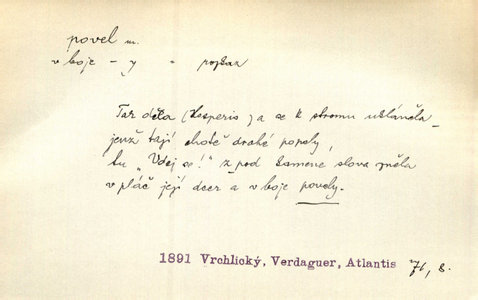 povel m.
v boje – y
Tak děla (Hesperis) a se k stromu ukláněla –
jenž tají choťě drahé popely,
tu „Vdej se!“ z pod kamene slova zněla
v pláč její dcer a v boje povely.
1891 Vrchlický, Verdaguer, Atlantis 71, 8.